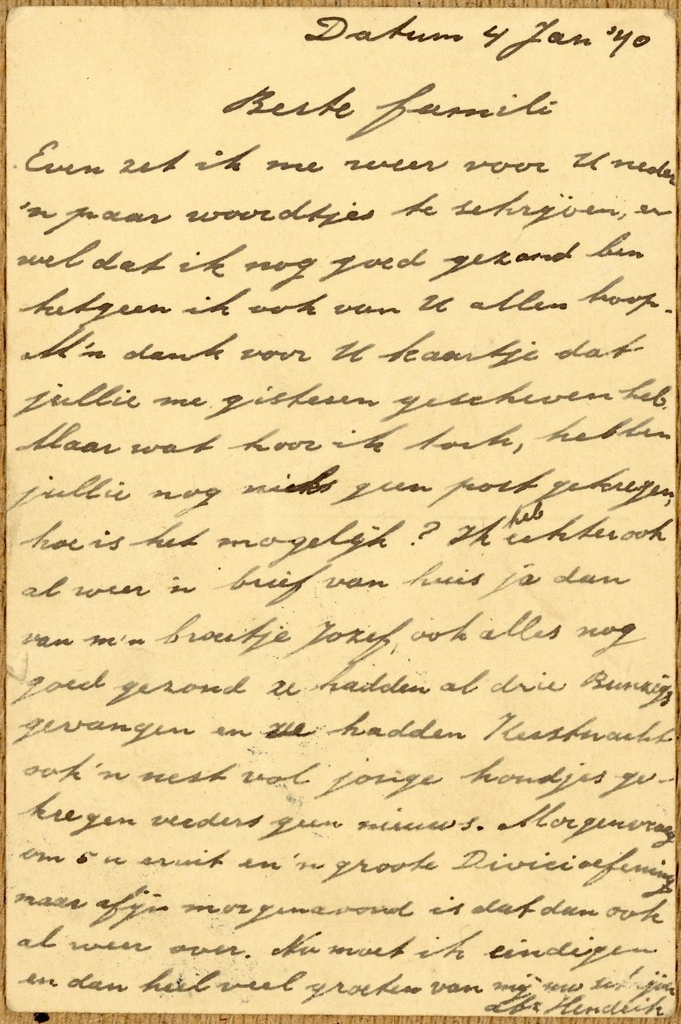 Datum 4 Jan '40
Beste famili
Even zet ik me weer voor U neder
'n paar woordtjes te schrijven, en
wel dat ik nog goed gezond ben
hetgeen ik ook van U allen hoop.
M'n dank voor U kaartje dat
jullie me gisteren gescheven heb.
Maar wat hoor ik toch, hebben
jullie nog niets geen post gekregen,
hoe is het mogelijk? Ik heb echter ook
al weer 'n brief van huis ja dan
van m'n broertje Jozef, ook alles nog
goed gezond ze hadden al drie Bunzigs
gevangen en ze hadden Kerstnacht
ook 'n nest vol jonge hondjes ge-
kregen verders geen nieuws. Morgenvroeg
om 5 u eruit en 'n groote Divicieoefening
maar afijn morgenavond is dat dan ook
al weer over. Nu moet ik eindigen
en dan heel veel groeten van mij uw
Hendrik